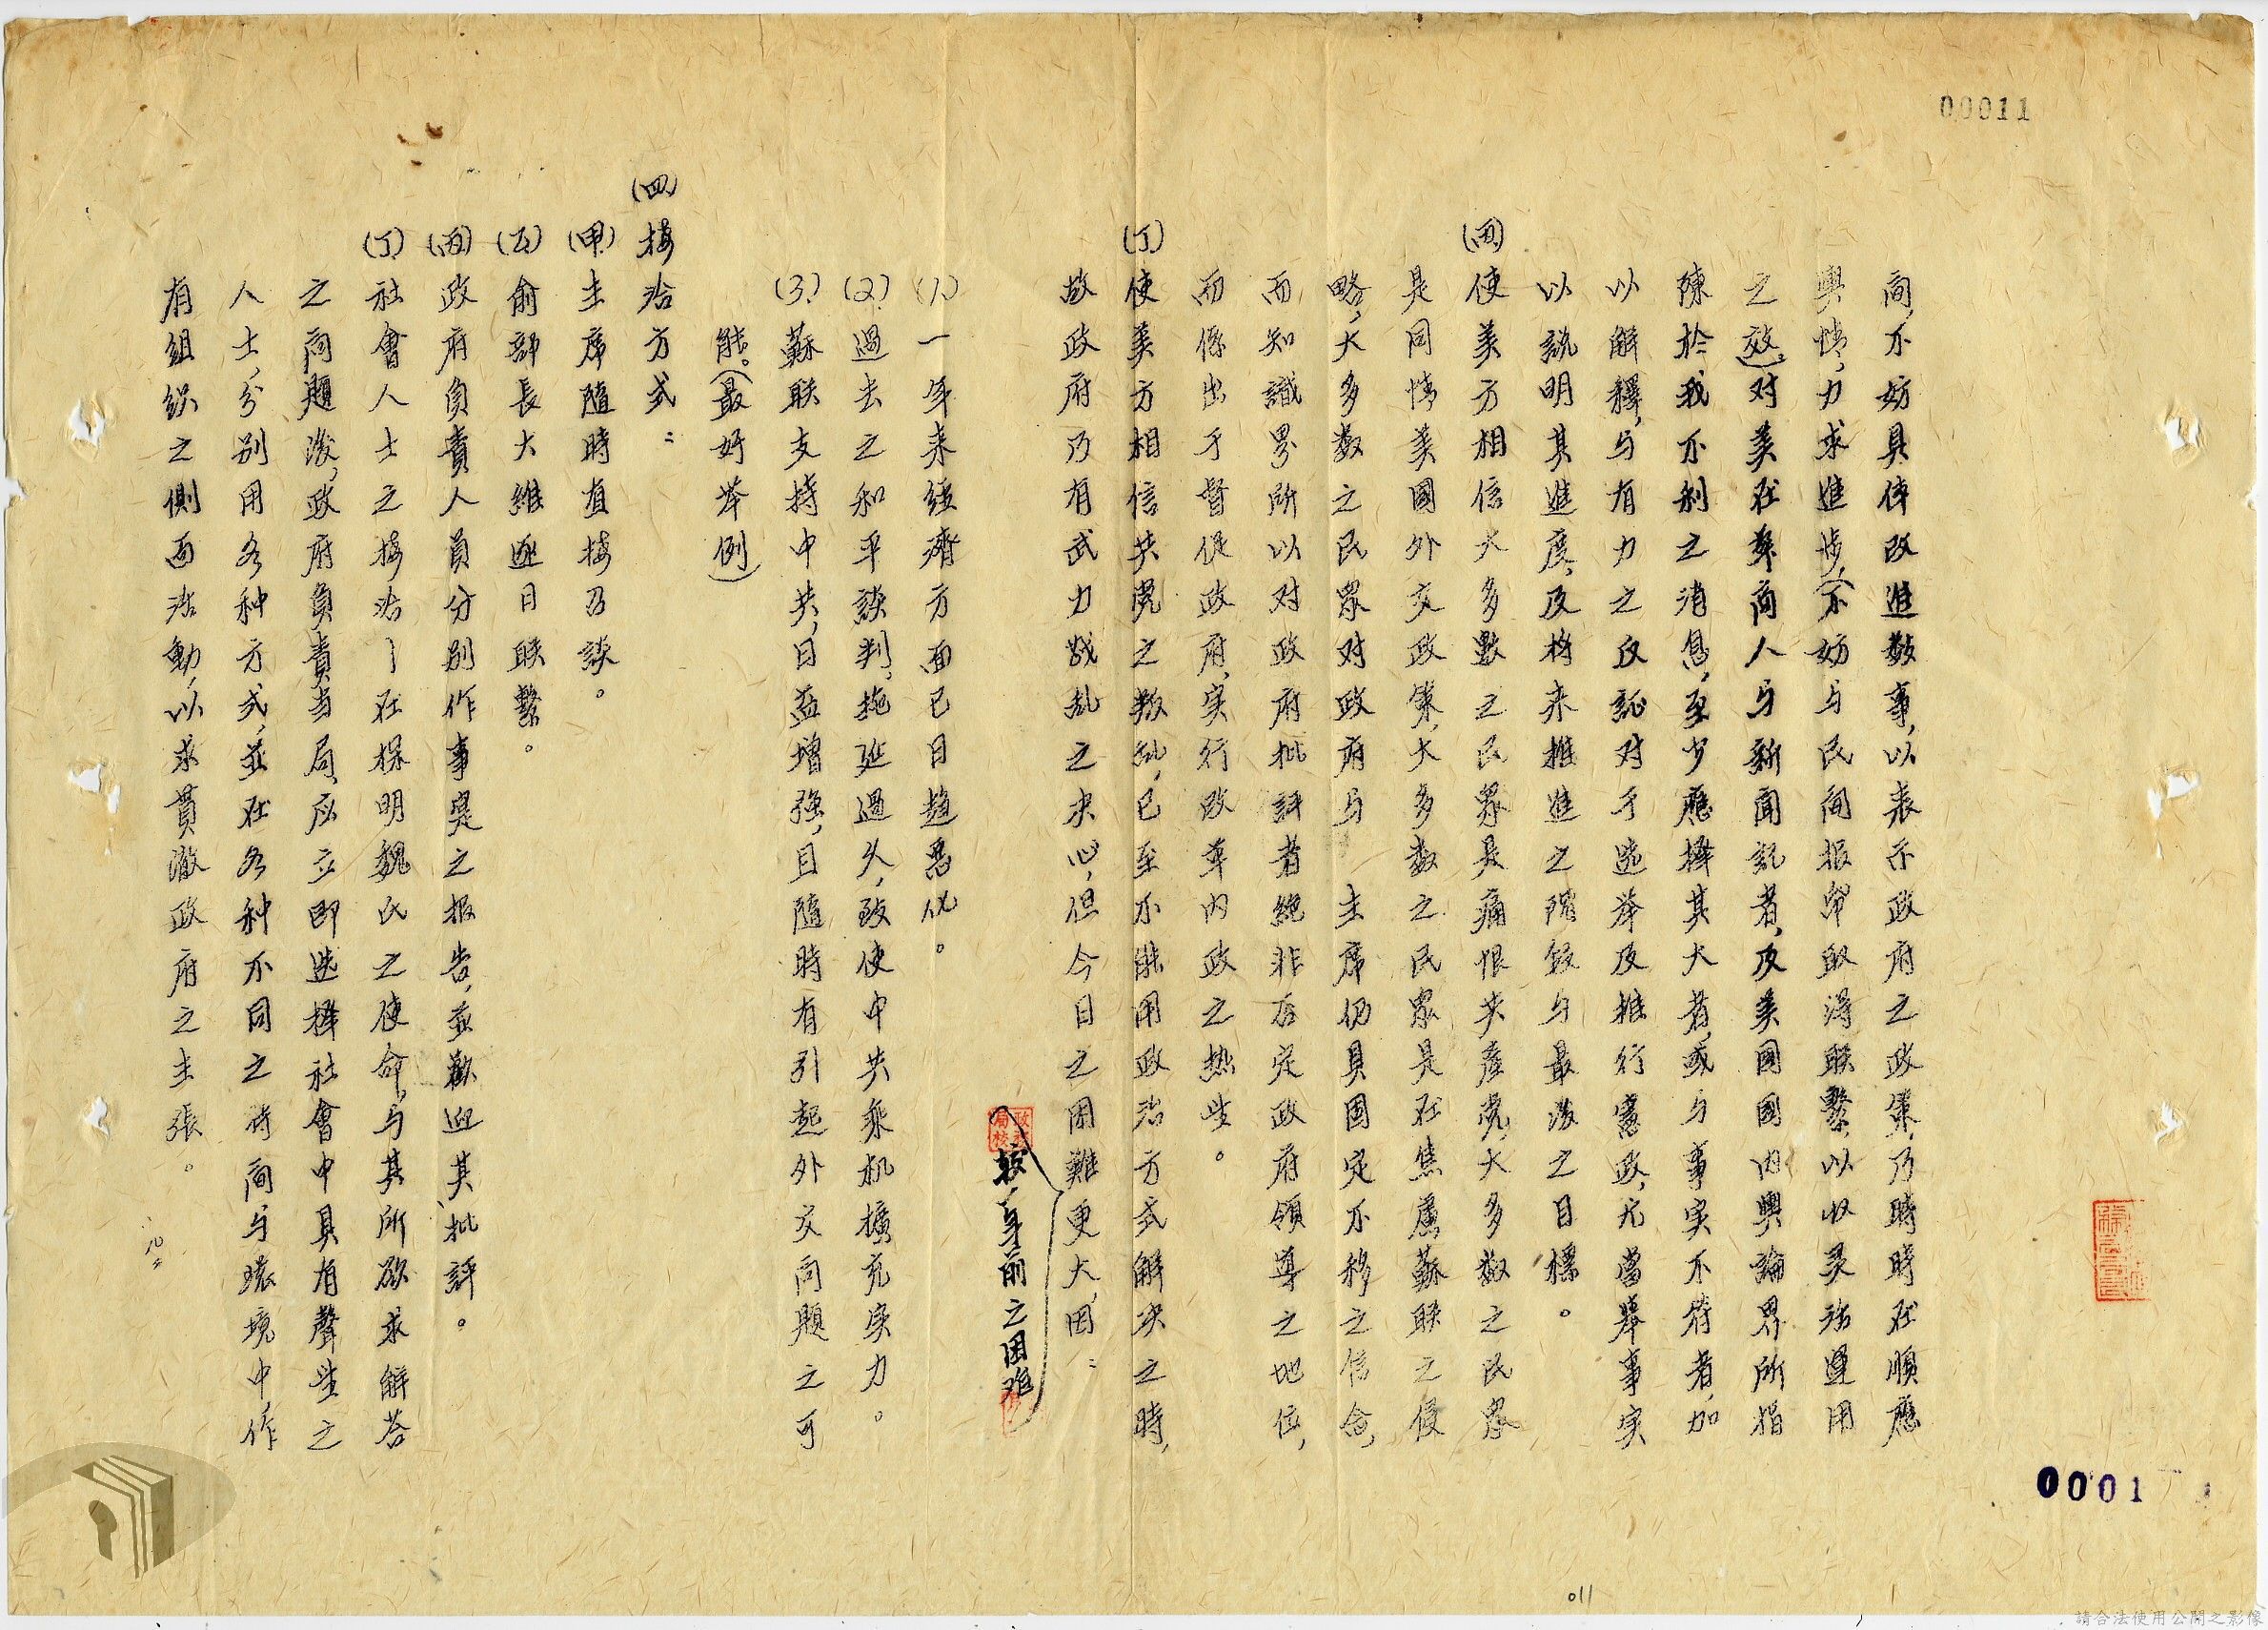 00011
間,不妨具体改進数事,以表示政府之政策,乃時時在順應
輿情,力求進步,(不妨与民间报界取得联繫,以收灵活運用
之效。)对美在華商人与新聞記者,及美國國内輿論界所指
陳於我不利之消息,至少應擇其大者,或与事实不符者,加
以解釋,与有力之反証对于选举及推行憲政,尤當舉事实
以説明其進度,及将来推進之階段与最後之目標。
(丙)使美方相信大多數之民眾是痛恨共產党,大多数之民眾
是同情美國外交政策,大多数之民眾是在焦慮蘇联之侵
略,大多数之民眾对政府与 主席仍具固定不移之信念,
而知識界所以对政府批評者絕非否定政府領導之地位,
而係出于督促政府,实行改革内政之热望。
(丁)使美方相信共党之叛乱,已至不能用政治方式解决之時,
故政府乃有武力戡乱之决心,但今日之困難更大,因:
較一年前之困难
(1)一年来經濟方面已日趋惡化。
(2)過去之和平談判,拖延過久,致使中共乘机擴充实力。
(3)蘇联支持中共,日益增强,且隨時有引起外交问題之可
能。(最好举例)
(四)接洽方式:
(甲)主席隨時直接召談。
(乙)俞部長大維逐日联繫。
(丙)政府負責人員分别作事実之报告,並歡迎其批評。
(丁)社會人士之接洽—在探明魏氏之使命,与其所欲求解答
之问題後,政府負責当局,应立即选擇社會中具有聲望之
人士,分别用各种方式,並在各种不同之時间与環境中,作
有組织之側面活動,以求貫澈政府之主張。
0001
011
請合法使用公開之影像